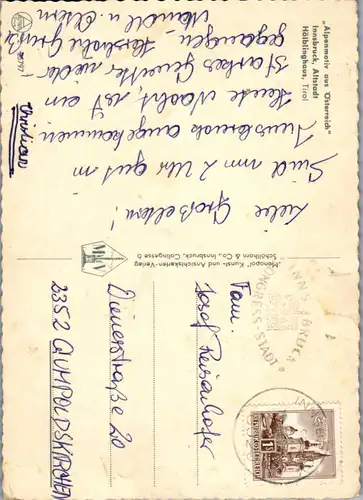 "Alpenmotiv aus Österreich"
Innsbruck, Altstadt
Hölblinghaus, Tirol
Liebe Großeltern!
Sind um 2 Uhr gut in
Innsbruck angekommen.
Heute Nacht, ist ein
starkes Gewitter, nieder-
gegangen. Herzliche Grüße
u. Eltern
Christian
"Monopol" Kunst- und Ansichtskarten-Verlag
Schöllhorn & Co., Innsbruck, Collingasse 6
INNSBRUCK
KONGRESS-STADT
Fam.
Josef Reisenhofer
Dienerstraße 20
2352 GUMPOLDSKIRCHEN
REPUBLIK ÖSTERREICH